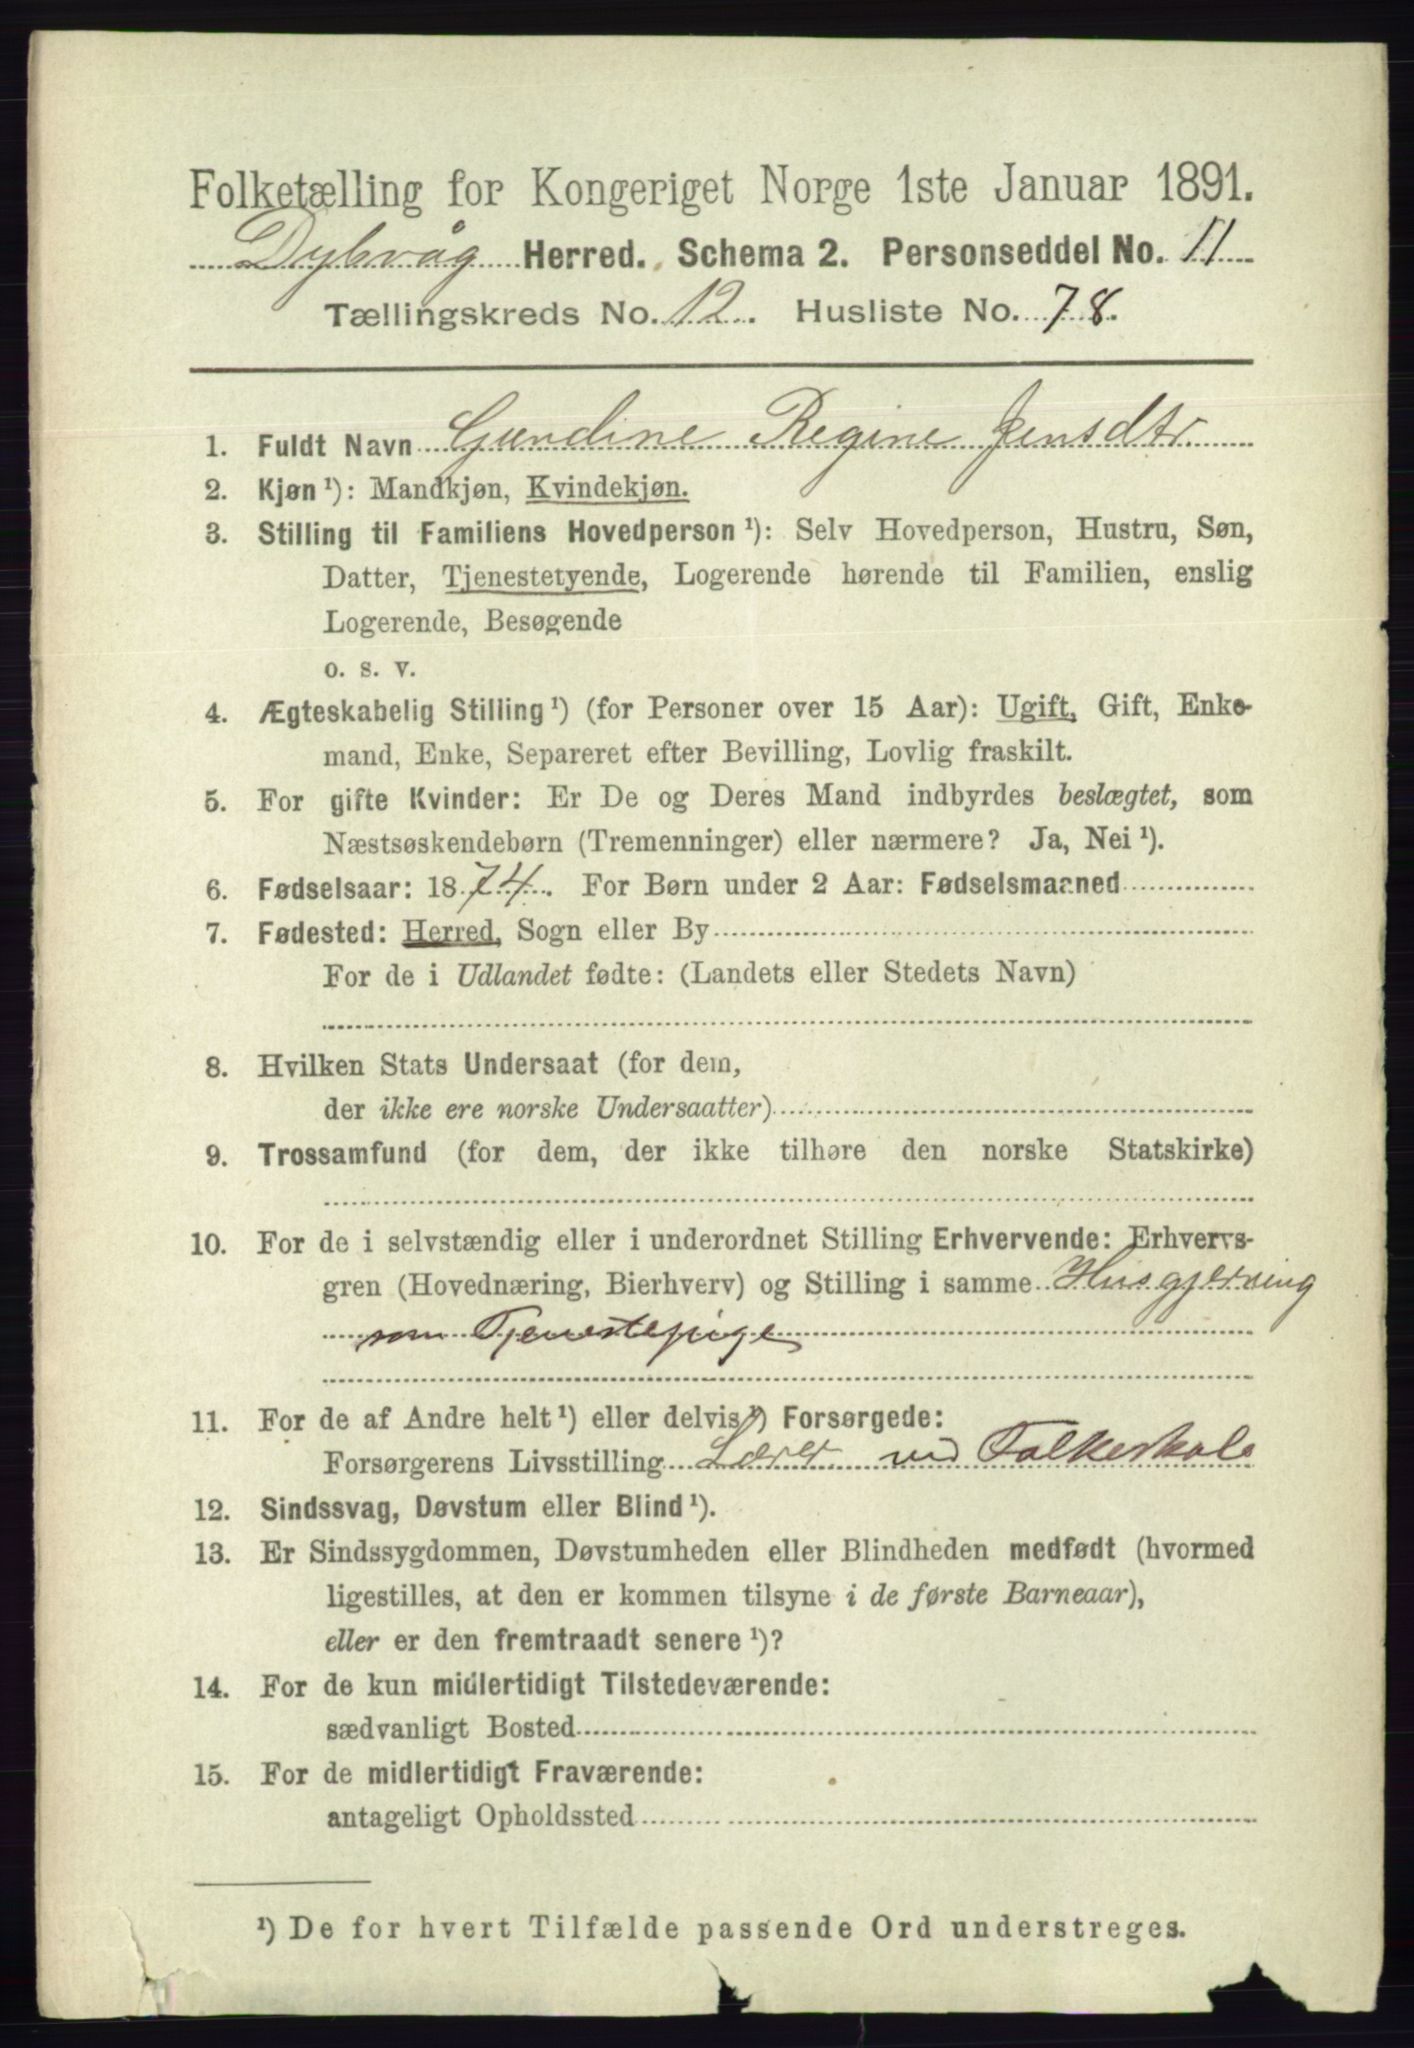 Folketælling for Kongeriget Norge 1ste Januar 1891.
Dybvåg Herred. Schema 2. Personseddel No. 11
Tællingskreds No. 12. Husliste No. 78.
1. Fuldt Navn Gundine Regine Jensdtr
2. Kjøn ¹): Mandkjøn, Kvindekjøn.
3. Stilling til Familiens Hovedperson ¹): Selv Hovedperson, Hustru, Søn,
Datter, Tjenestetyende, Logerende hørende til Familien, enslig
Logerende, Besøgende
o. s. v.
4. Ægteskabelig Stilling ¹) (for Personer over 15 Aar): Ugift, Gift, Enke-
mand, Enke, Separeret efter Bevilling, Lovlig fraskilt.
5. For gifte Kvinder: Er De og Deres Mand indbyrdes beslægtet, som
Næstsøskendebørn (Tremenninger) eller nærmere? Ja, Nei ¹).
6. Fødselsaar: 1874. For Børn under 2 Aar: Fødselsmaaned
7. Fødested: Herred, Sogn eller By
For de i Udlandet fødte: (Landets eller Stedets Navn)
8. Hvilken Stats Undersaat (for dem,
der ikke ere norske Undersaatter)
9. Trossamfund (for dem, der ikke tilhøre den norske Statskirke)
10. For de i selvstændig eller i underordnet Stilling Erhvervende: Erhvervs-
gren (Hovednæring, Bierhverv) og Stilling i samme Husgjerning
som Tjenestepige
11. For de af Andre helt ¹) eller delvis ¹) Forsørgede:
Forsørgerens Livsstilling Lærer ved Folkeskole
12. Sindssvag, Døvstum eller Blind ¹).
13. Er Sindssygdommen, Døvstumheden eller Blindheden medfødt (hvormed
ligestilles, at den er kommen tilsyne i de første Barneaar),
eller er den fremtraadt senere ¹)?
14. For de kun midlertidigt Tilstedeværende:
sædvanligt Bosted
15. For de midlertidigt Fraværende:
antageligt Opholdssted
¹) De for hvert Tilfælde passende Ord understreges.